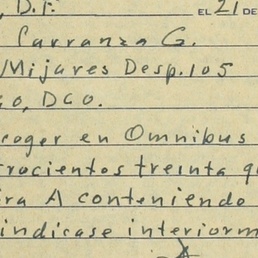 , D.F. EL 21 DE
Carranza G.
/Mijares Desp. 105
go, DGO.
coger en Omnibus
trocientos treinta q
ra A conteniendo
indicase interiorm